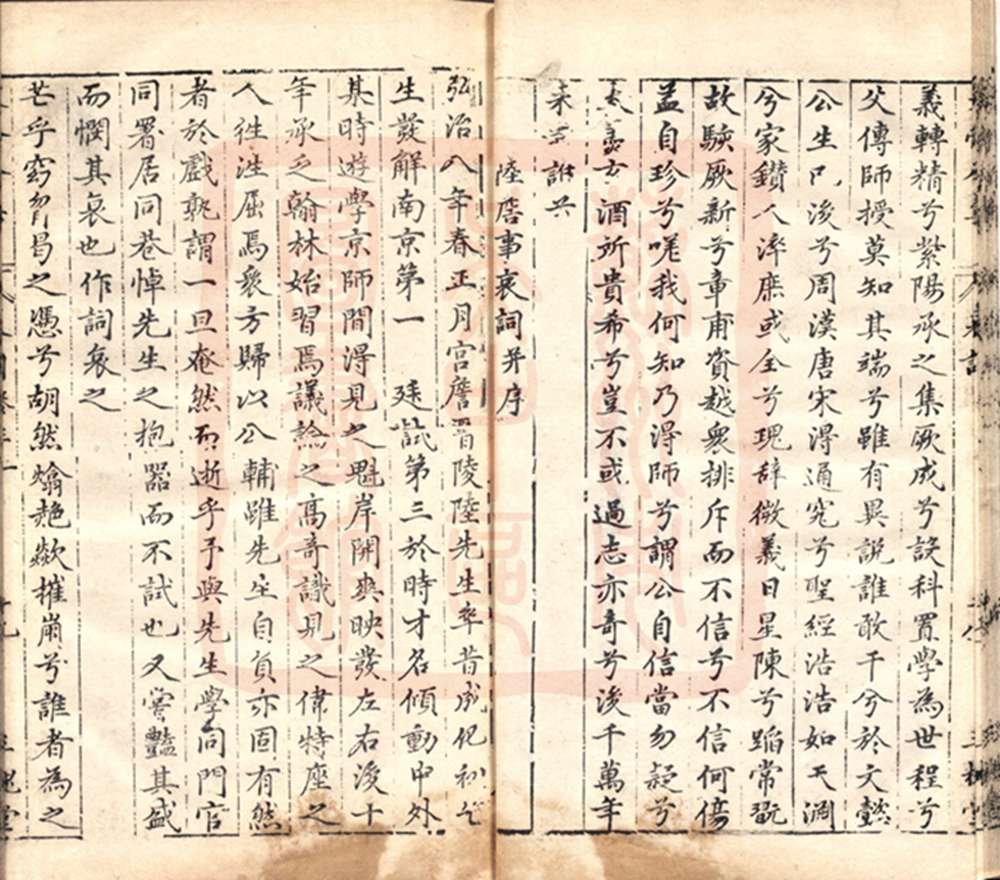 義轉精兮紫陽承之集厥成兮設科置學為世程兮
父傳師授莫知其端兮雖有異說誰敢干兮於文懿
公生巳後兮周漢唐宋得通究兮聖經浩浩如天淵
兮家鑽人淬糜或全兮瑰辭微義日星陳兮蹈常翫
故駭厥新兮章甫資越衆排斥而不信兮不信何傷
益自珍兮嗟我何知乃得師兮謂公自信當勿疑兮
酒所貴希兮豈不或過志亦奇兮後千萬年
陸詹事哀詞并序
弘治八年春正月宮詹晋陵陸先生卒昔成化初先
生發解南京第一 廷試第三於時才名傾動中外
某時遊學京師間得見之魁岸開爽映發左右後十
年承乏翰林始習焉議論之高奇識見之偉特座之
人往往屈焉衆方歸以公輔雖先生自負亦固有然
者於戲孰謂一旦奄然而逝乎予與先生學同門官
同署居同巷悼先生之抱器而不試也又嘗豔其盛
而憫其哀也作詞哀之
芒乎窈曶曷之憑兮胡然熻赩歘摧崩兮誰者為之